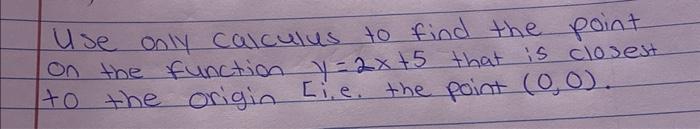 Use only calculus to find the point
on the function y=2x+5 that is closest
to the origin [i.e. the point (0,0).